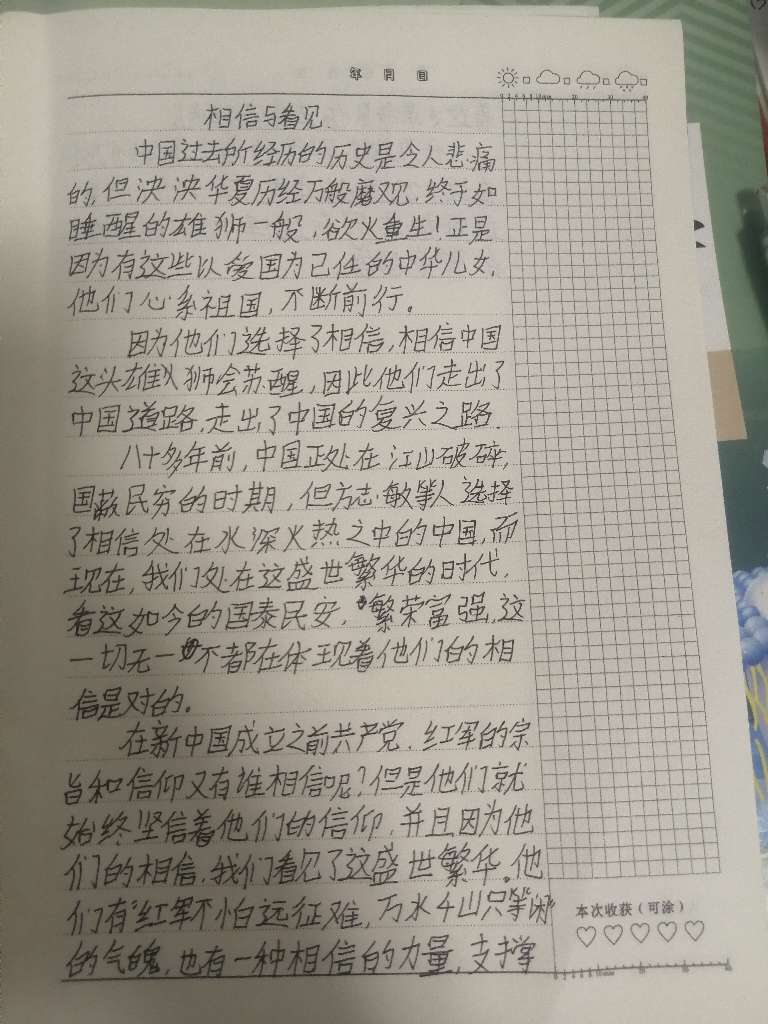 年 月 日
相信与看见
中国过去所经历的历史是令人悲痛
的,但泱泱华夏历经万般磨难,终于如
睡醒的雄狮一般,欲火重生!正是
因为有这些以爱国为己任的中华儿女,
他们心系祖国,不断前行。
因为他们选择了相信,相信中国
这头雄狮会苏醒,因此他们走出了
中国道路,走出了中国的复兴之路.
八十多年前,中国正处在江山破碎,
国敝民穷的时期,但方志敏等人选择
了相信处在水深火热之中的中国,而
现在,我们处在这盛世繁华的时代,
看这如今的国泰民安,繁荣富强,这
一切无一不都在体现着他们的相
信是对的。
在新中国成立之前共产党,红军的宗
旨和信仰又有谁相信呢?但是他们就
始终坚信着他们的信仰,并且因为他
们的相信,我们看见了这盛世繁华。他
们有“红军不怕远征难,万水千山只等闲”
的气魄,也有一种相信的力量,支撑
本次收获(可涂)